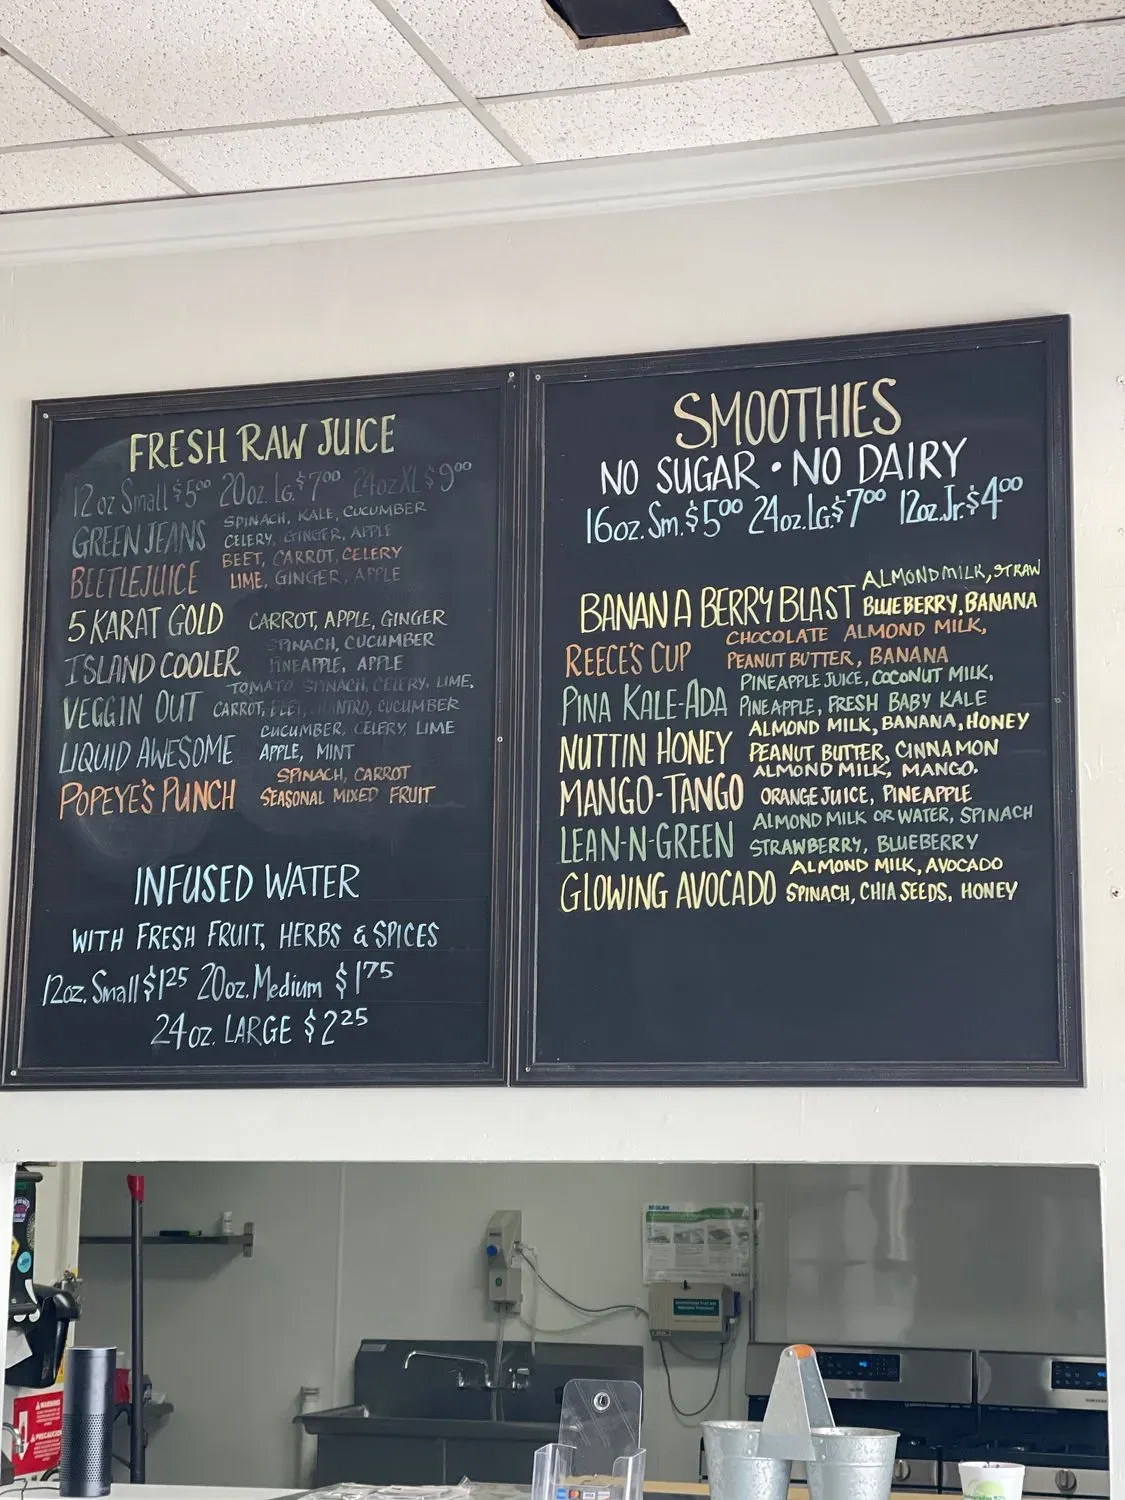 FRESH RAW JUICE
12 oz Small $5⁰⁰ 20oz. Lg. $7⁰⁰ 24oz XL $9⁰⁰
GREEN JEANS SPINACH, KALE, CUCUMBER
CELERY, GINGER, APPLE
BEETLEJUICE BEET, CARROT, CELERY
LIME, GINGER, APPLE
5 KARAT GOLD CARROT, APPLE, GINGER
ISLAND COOLER SPINACH, CUCUMBER
PINEAPPLE, APPLE
VEGGIN OUT TOMATO SPINACH, CELERY, LIME,
CARROT, BEET, CILANTRO, CUCUMBER
LIQUID AWESOME CUCUMBER, CELERY, LIME
APPLE, MINT
POPEYE'S PUNCH SPINACH, CARROT
SEASONAL MIXED FRUIT
INFUSED WATER
WITH FRESH FRUIT, HERBS & SPICES
12oz. Small $1²⁵ 20oz. Medium $1⁷⁵
24oz. LARGE $2²⁵
SMOOTHIES
NO SUGAR • NO DAIRY
16oz. Sm. $5⁰⁰ 24oz. Lg. $7⁰⁰ 12oz. Jr. $4⁰⁰
BANANA BERRY BLAST ALMOND MILK, STRAW
BLUEBERRY, BANANA
REECE'S CUP CHOCOLATE ALMOND MILK,
PEANUT BUTTER, BANANA
PINA KALE-ADA PINEAPPLE JUICE, COCONUT MILK,
PINEAPPLE, FRESH BABY KALE
NUTTIN HONEY ALMOND MILK, BANANA, HONEY
PEANUT BUTTER, CINNAMON
MANGO-TANGO ALMOND MILK, MANGO,
ORANGE JUICE, PINEAPPLE
LEAN-N-GREEN ALMOND MILK OR WATER, SPINACH
STRAWBERRY, BLUEBERRY
GLOWING AVOCADO ALMOND MILK, AVOCADO
SPINACH, CHIA SEEDS, HONEY
ECOLAB
WARNING
PRECAUCIÓN